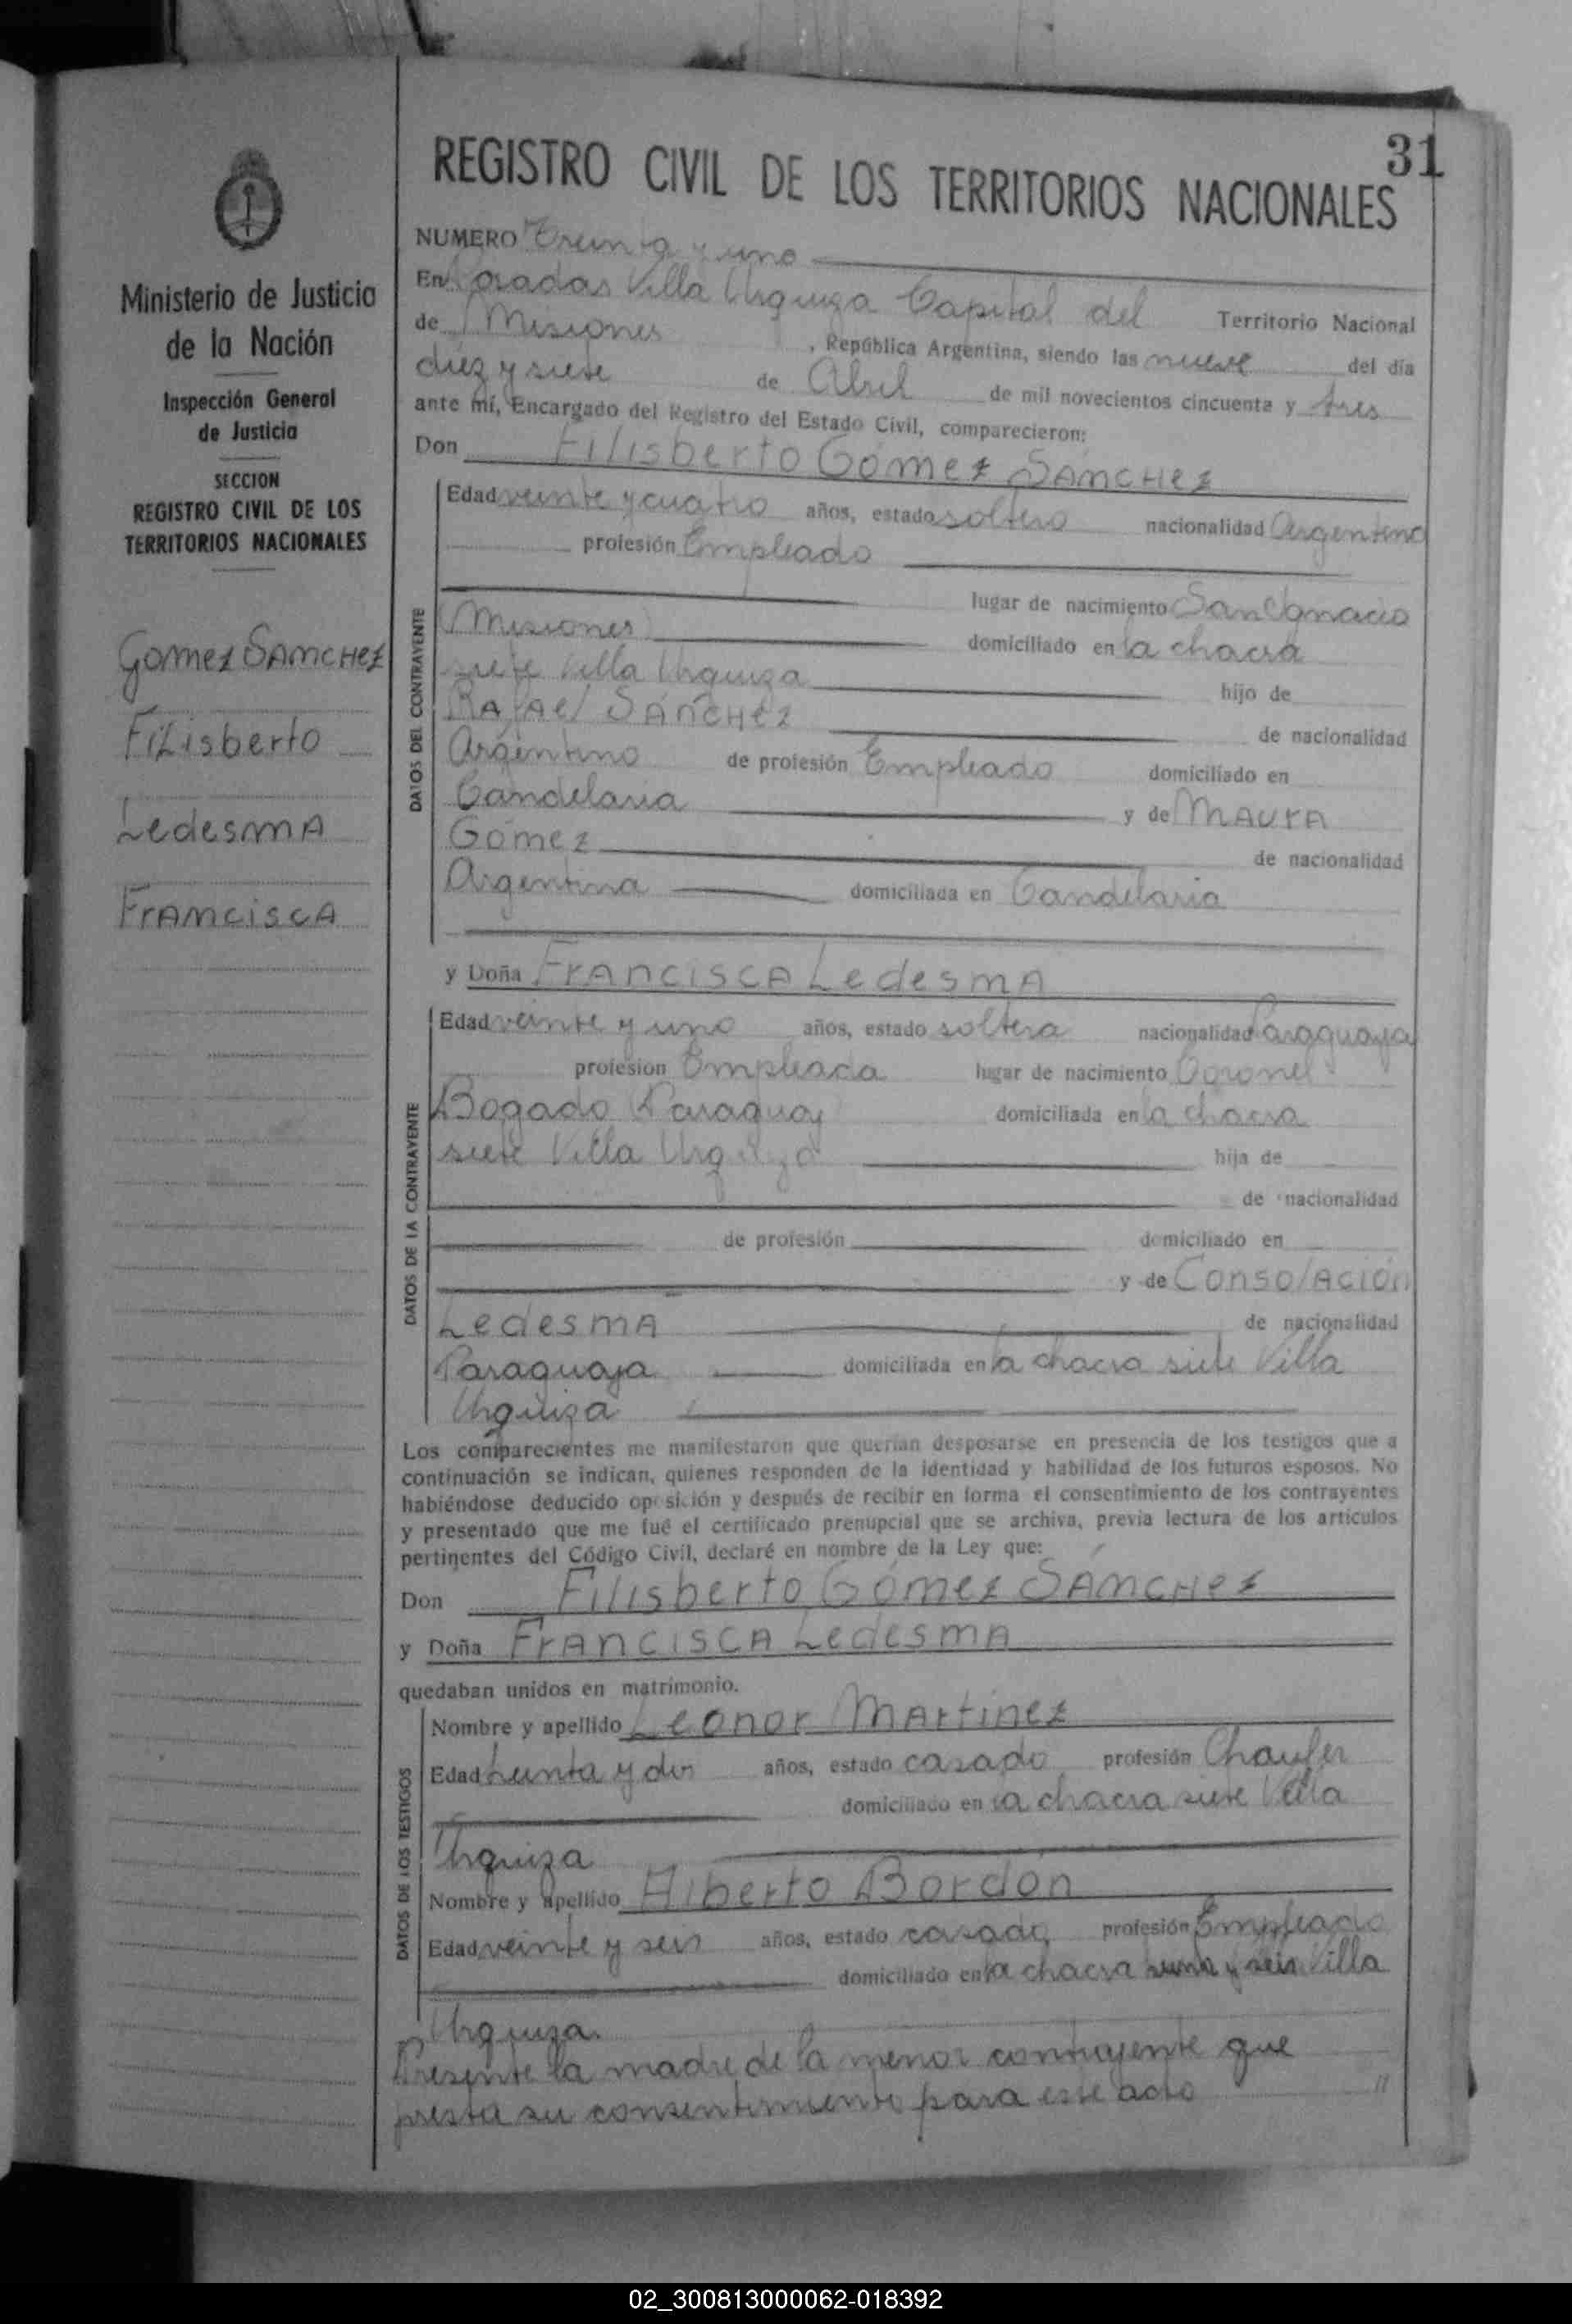 31
REGISTRO CIVIL DE LOS TERRITORIOS NACIONALES
Ministerio de Justicia
de la Nación
Inspección General
de Justicia
SECCION
REGISTRO CIVIL DE LOS
TERRITORIOS NACIONALES
Gomez SAnCHez
Filisberto
LedesmA
FrAnciscA
NUMERO Treinta y uno
En Posadas Villa Urquiza Capital del Territorio Nacional
de Misiones, República Argentina, siendo las nueve del día
diez y siete de Abril de mil novecientos cincuenta y tres
ante mí, Encargado del Registro del Estado Civil, comparecieron:
Don Filisberto Gómez SÁnCHez
DATOS DEL CONTRAYENTE
Edad veinte y cuatro años, estado soltero nacionalidad Argentino
profesión Empleado
lugar de nacimiento San Ignacio
(Misiones) domiciliado en la chacra
siete Villa Urquiza hijo de
RAfAel SÁnCHez de nacionalidad
Argentino de profesión Empleado domiciliado en
Candelaria y de MAurA
Gómez de nacionalidad
Argentina domiciliada en Candelaria
y Doña FrAnciscA LedesmA
DATOS DE LA CONTRAYENTE
Edad veinte y uno años, estado soltera nacionalidad Paraguaya
profesión Empleada lugar de nacimiento Coronel
Bogado (Paraguay) domiciliada en la chacra
siete Villa Urquiza hija de
de nacionalidad
de profesión domiciliado en
y de ConsolAción
LedesmA de nacionalidad
Paraguaya domiciliada en la chacra siete Villa
Urquiza
Los comparecientes me manifestaron que querían desposarse en presencia de los testigos que a
continuación se indican, quienes responden de la identidad y habilidad de los futuros esposos. No
habiéndose deducido oposición y después de recibir en forma el consentimiento de los contrayentes
y presentado que me fué el certificado prenupcial que se archiva, previa lectura de los artículos
pertinentes del Código Civil, declaré en nombre de la Ley que:
Don Filisberto Gómez SÁnCHez
y Doña FrAnciscA LedesmA
quedaban unidos en matrimonio.
DATOS DE LOS TESTIGOS
Nombre y apellido Leonor MArtínez
Edad treinta y dos años, estado casado profesión Chaufer
domiciliado en la chacra siete Villa
Urquiza
Nombre y apellido Alberto Bordón
Edad veinte y seis años, estado casado profesión Empleado
domiciliado en la chacra y seis Villa
Urquiza.
Presente la madre de la menor contrayente que
presta su consentimiento para este acto //
02_300813000062-018392